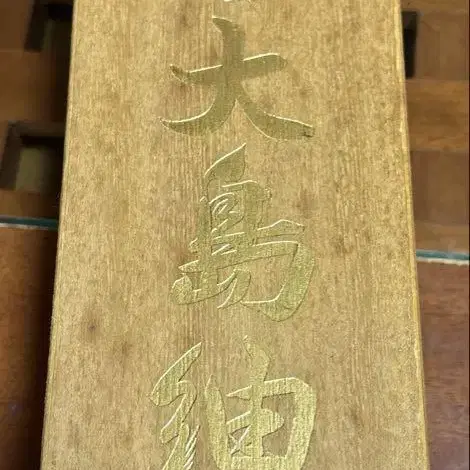 大島紬